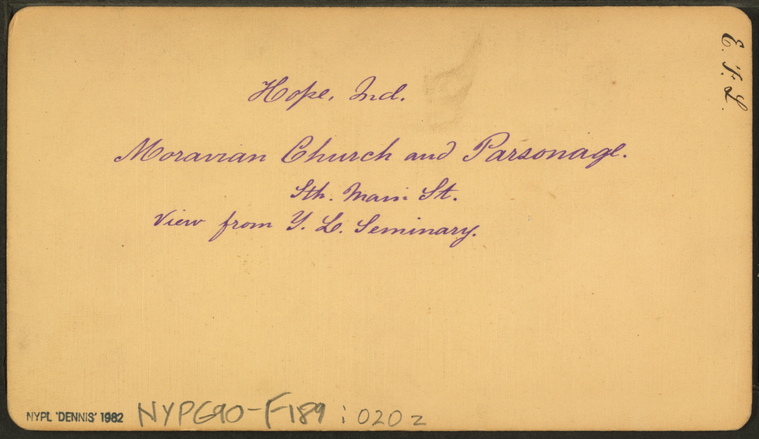 E. F. L.
Hope, Ind.
Moravian Church and Parsonage.
Sth. Main St.
View from Y. L. Seminary.
NYPL 'DENNIS' 1982 NYPG90-F189 : 020z